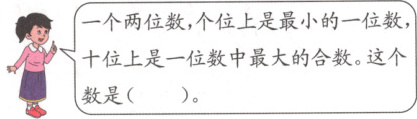 一个两位数,个位上是最小的一位数,
十位上是一位数中最大的合数。这个
数是(  )。